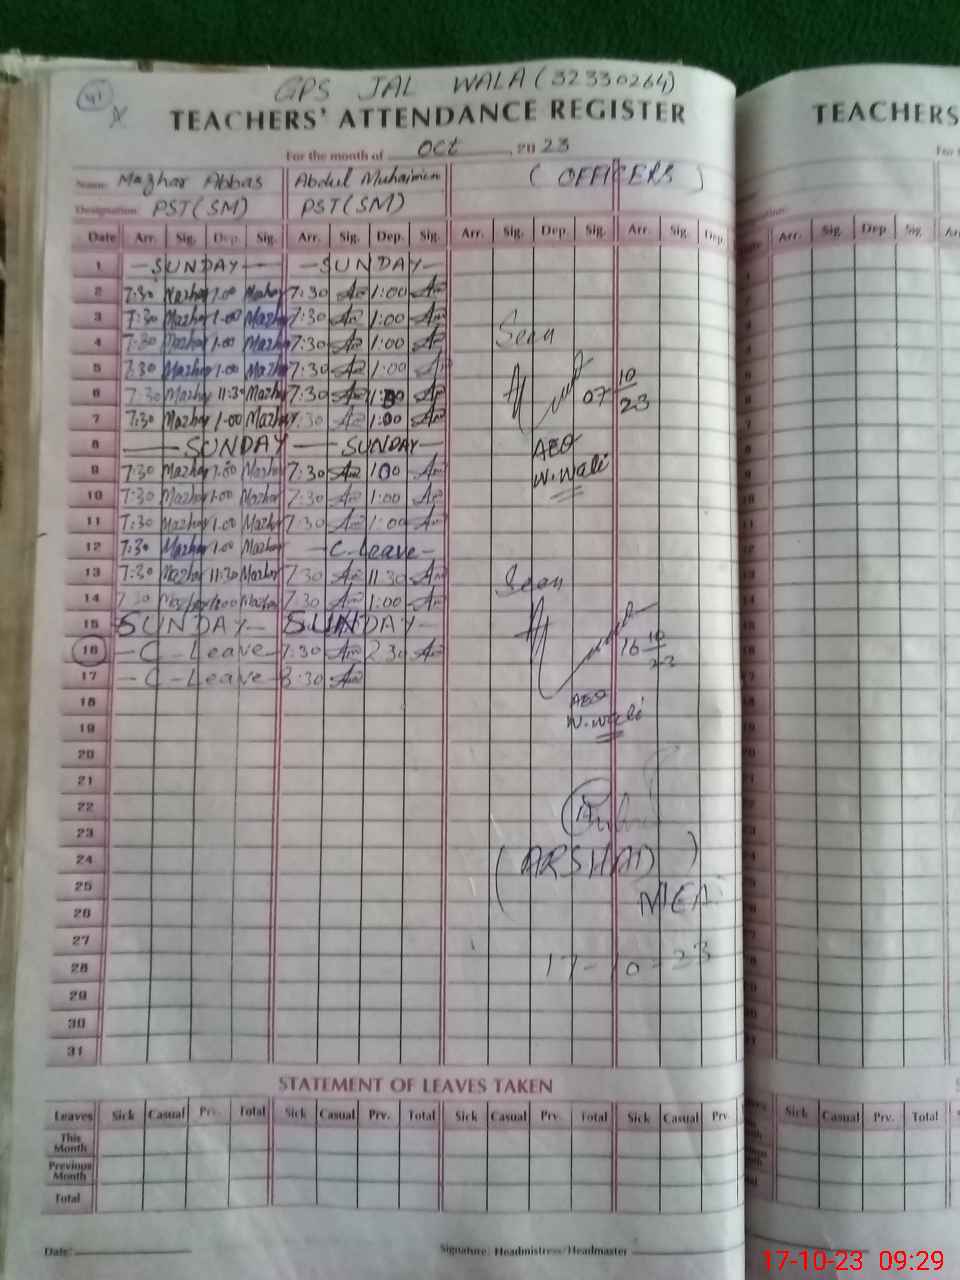 41
GPS JAL WALA (32330264)
TEACHERS' ATTENDANCE REGISTER
For the month of Oct, 20 23
Name: Mazhar Abbas Abdul Muhaimin (OFFICERS)
Designation: PST(SM) PST(SM)
Date Arr. Sig. Dep. Sig. Arr. Sig. Dep. Sig. Arr. Sig. Dep. Sig. Arr. Sig. Dep.
1 —SUNDAY— —SUNDAY—
2 7:30 Mazhar 1.00 Mazhar 7:30 1:00
3 7:30 Mazhar 1.00 Mazhar 7:30 1:00
4 7:30 Mazhar 1.00 Mazhar 7:30 1:00 Seen
5 7:30 Mazhar 1.00 Mazhar 7:30 1:00
6 7:30 Mazhar 11:30 Mazhar 7:30 07 10/23
7 7:30 Mazhar 1.00 Mazhar 7:30 1:00
8 —SUNDAY— SUNDAY— AEO
9 7:30 Mazhar 1.00 Mazhar 7:30 1:00 W.Wali
10 7:30 Mazhar 1.00 Mazhar 7:30 1:00
11 7:30 Mazhar 1.00 Mazhar 7:30 1:00
12 7:30 Mazhar 1.00 Mazhar —C-Leave—
13 7:30 Mazhar 11:30 Mazhar 7:30 11:30 Seen
14 7:30 Mazhar 1:00 Mazhar 7:30 1:00
15 SUNDAY— SUNDAY—
16 —C-Leave— 7:30 2:30 16 10/23
17 —C-Leave— 8:30
18 AEO
19 W.Wali
20
21
22
23
24 (ARSHAD)
25 MEA
26
27
28 17-10-23
29
30
31
STATEMENT OF LEAVES TAKEN
Leaves Sick Casual Prv. Total Sick Casual Prv. Total Sick Casual Prv. Total Sick Casual Prv.
This Month
Previous Month
Total
Date: Signature: Headmistress/Headmaster
TEACHERS
For
Arr. Sig. Dep. Sig.
Sick Casual Prv. Total
17-10-23 09:29